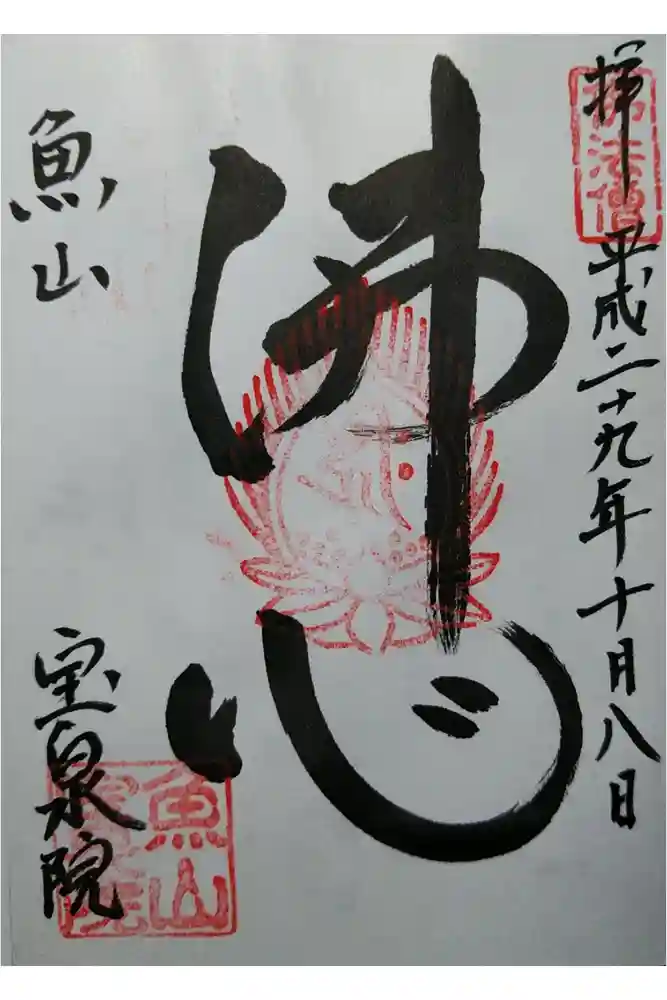 拝
平成二十九年十月八日
佛心
魚山
宝泉院
佛法僧
魚山
宝泉院